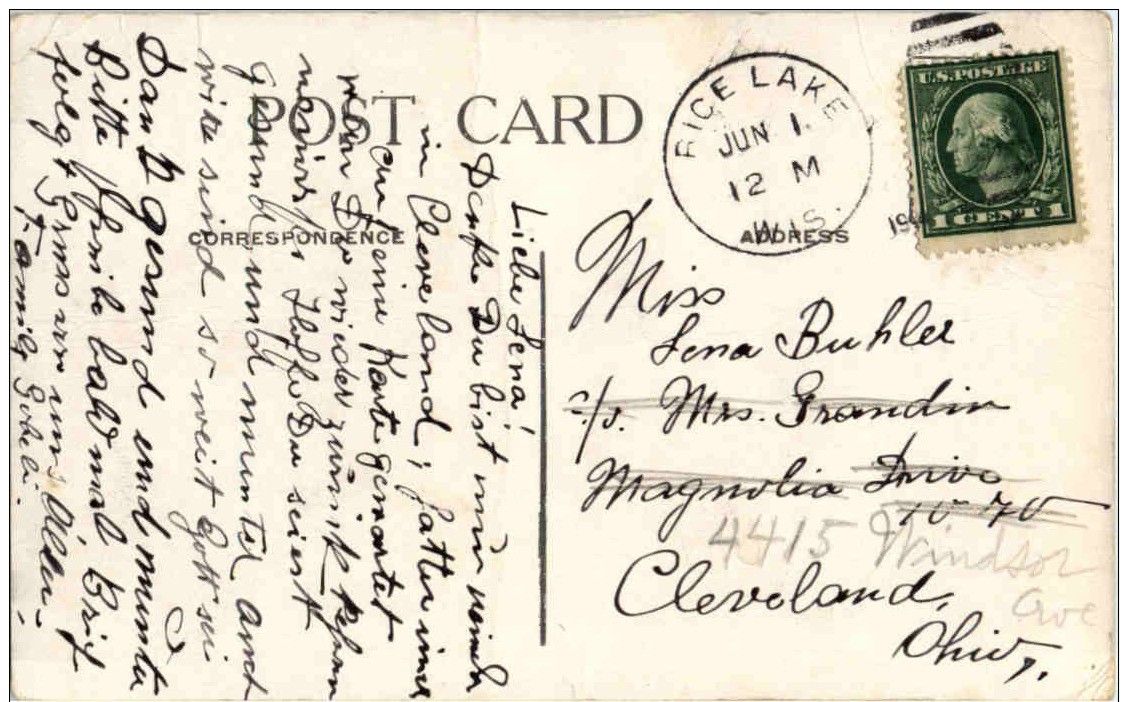 POST CARD
CORRESPONDENCE
ADDRESS
RICE LAKE
JUN 1.
12 M
WIS.
U.S. POSTAGE
1 CENT 1
Liebe Lena!
Denke Du bist nun wieder
in Cleveland, hatten imer
auf eine Karte gewartet
wen Du wieder zurück
Hoffe Du seiest
gesund und munter
wir sind so weit Gott sei
Dank gesund und munter
Bitte schreibe bald mal Brief
folgt Grüss von uns Allen.
Family
Miss
Lena Buhler
c/o. Mrs. Grandin
Magnolia Drive
4415 Windsor
Ave
Cleveland,
Ohio,